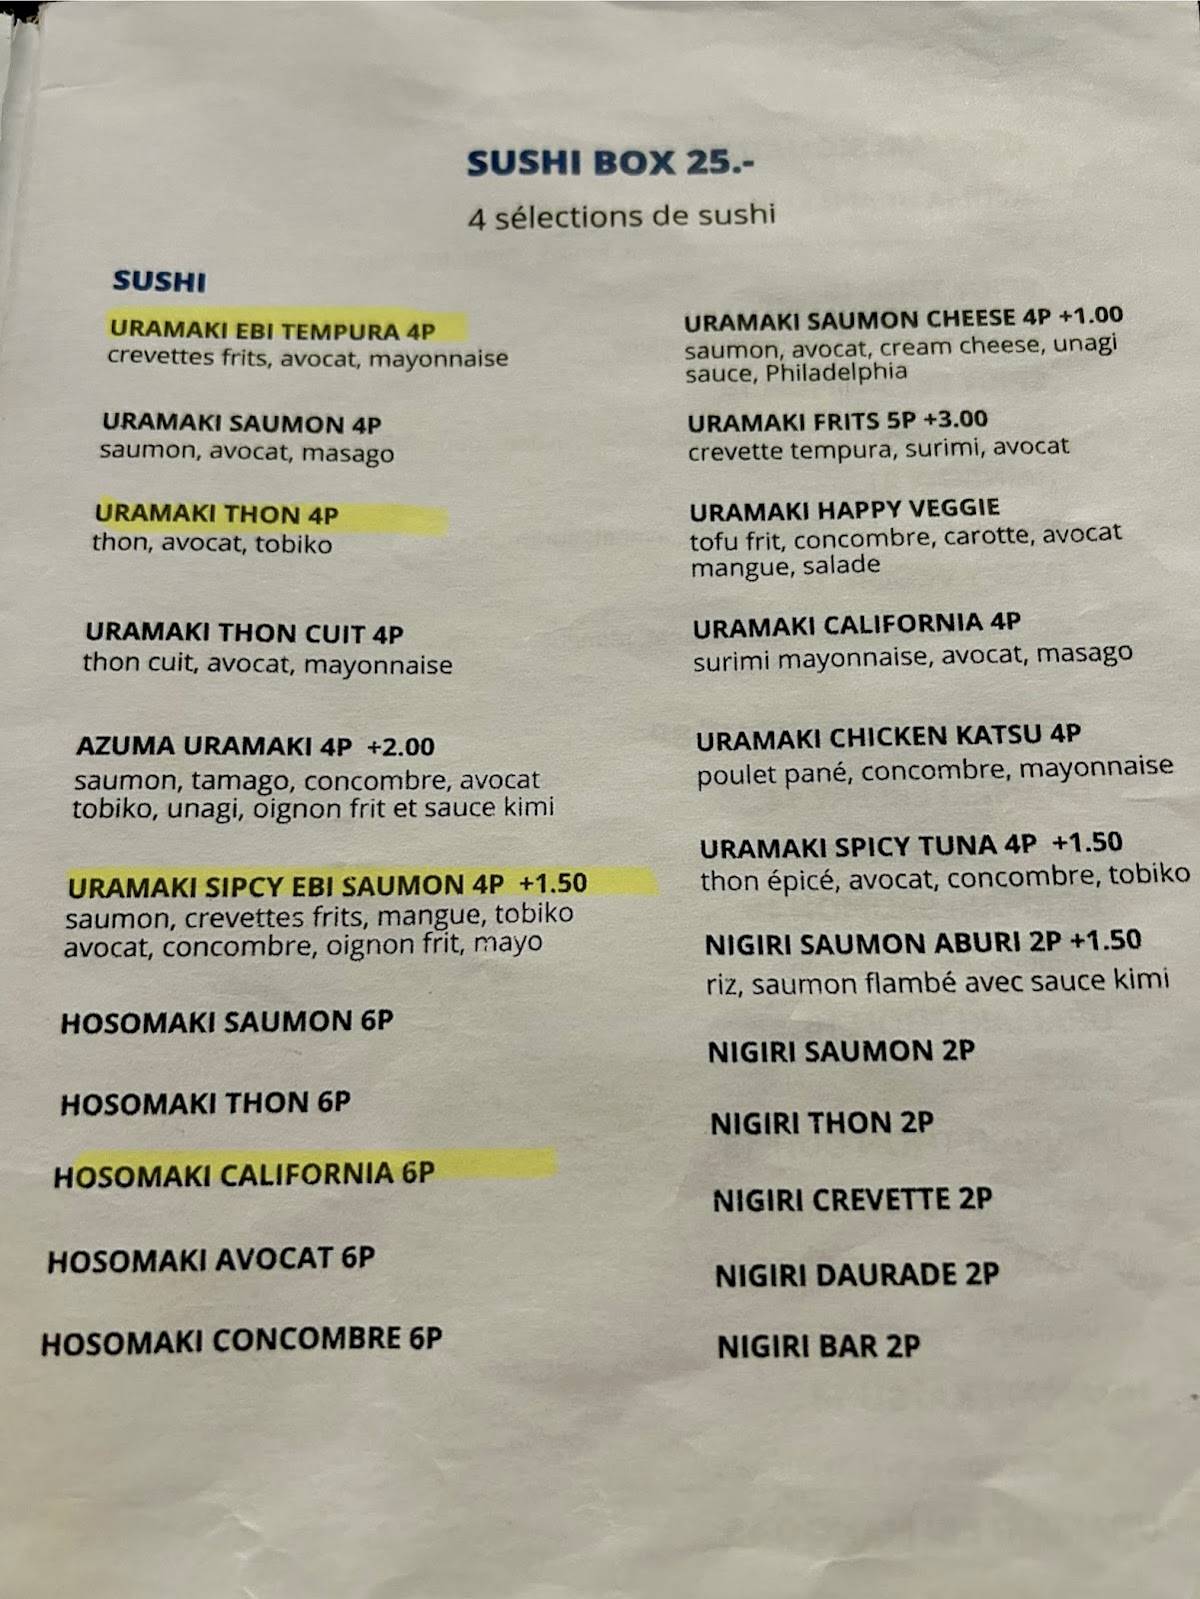 SUSHI BOX 25.-
4 sélections de sushi
SUSHI
URAMAKI EBI TEMPURA 4P
crevettes frits, avocat, mayonnaise
URAMAKI SAUMON 4P
saumon, avocat, masago
URAMAKI THON 4P
thon, avocat, tobiko
URAMAKI THON CUIT 4P
thon cuit, avocat, mayonnaise
AZUMA URAMAKI 4P +2.00
saumon, tamago, concombre, avocat
tobiko, unagi, oignon frit et sauce kimi
URAMAKI SIPCY EBI SAUMON 4P +1.50
saumon, crevettes frits, mangue, tobiko
avocat, concombre, oignon frit, mayo
HOSOMAKI SAUMON 6P
HOSOMAKI THON 6P
HOSOMAKI CALIFORNIA 6P
HOSOMAKI AVOCAT 6P
HOSOMAKI CONCOMBRE 6P
URAMAKI SAUMON CHEESE 4P +1.00
saumon, avocat, cream cheese, unagi
sauce, Philadelphia
URAMAKI FRITS 5P +3.00
crevette tempura, surimi, avocat
URAMAKI HAPPY VEGGIE
tofu frit, concombre, carotte, avocat
mangue, salade
URAMAKI CALIFORNIA 4P
surimi mayonnaise, avocat, masago
URAMAKI CHICKEN KATSU 4P
poulet pané, concombre, mayonnaise
URAMAKI SPICY TUNA 4P +1.50
thon épicé, avocat, concombre, tobiko
NIGIRI SAUMON ABURI 2P +1.50
riz, saumon flambé avec sauce kimi
NIGIRI SAUMON 2P
NIGIRI THON 2P
NIGIRI CREVETTE 2P
NIGIRI DAURADE 2P
NIGIRI BAR 2P